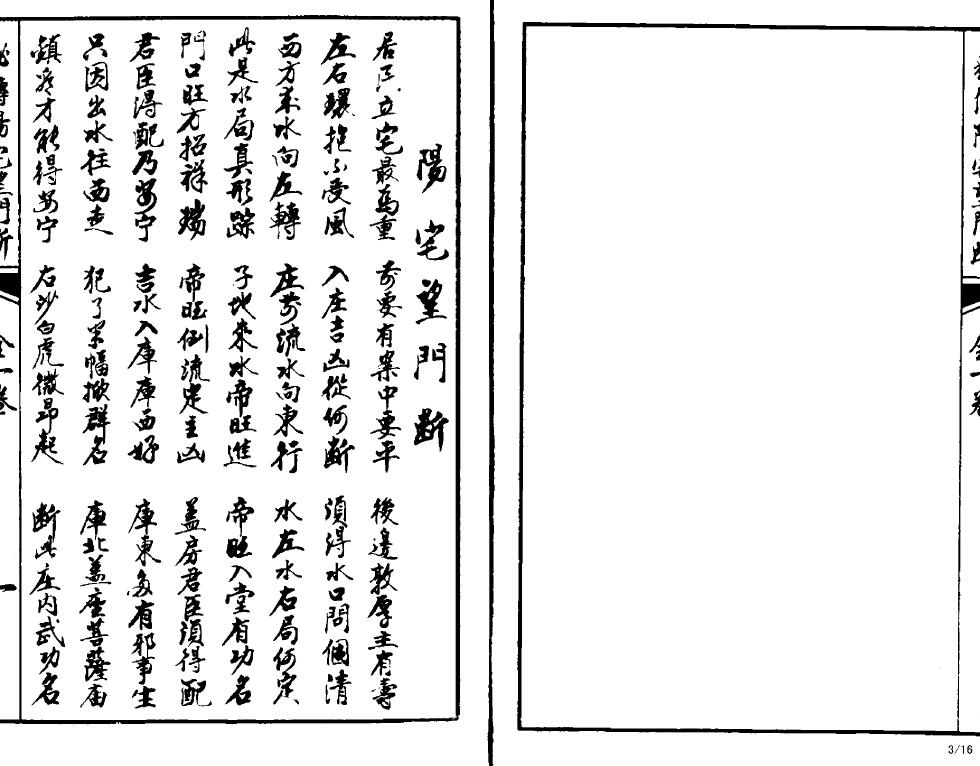 陽宅望門断
居民立宅最為重 前要有案中要平 後邊敦厚主有壽
左右環抱不受風 入庄吉凶從何断 須得水口問個清
西方來水向左轉 庄前流水向東行 水左水右局何定
此是水局真形踪 子地來水帝旺進 帝旺入堂有功名
門口旺方招祥瑞 帝旺倒流定主凶 蓋房君臣須得配
君臣得配乃安宁 吉水入庫庫西好 庫東多有邪事生
只因出水往西走 犯了 幅掀群名 庫北盖座菩薩庙
鎮 才能得安宁 右沙白虎微昂起 断此庄内武功名
金一卷
一
金一卷
3/16